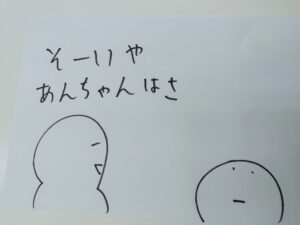 そーいや
あんちゃんはさ